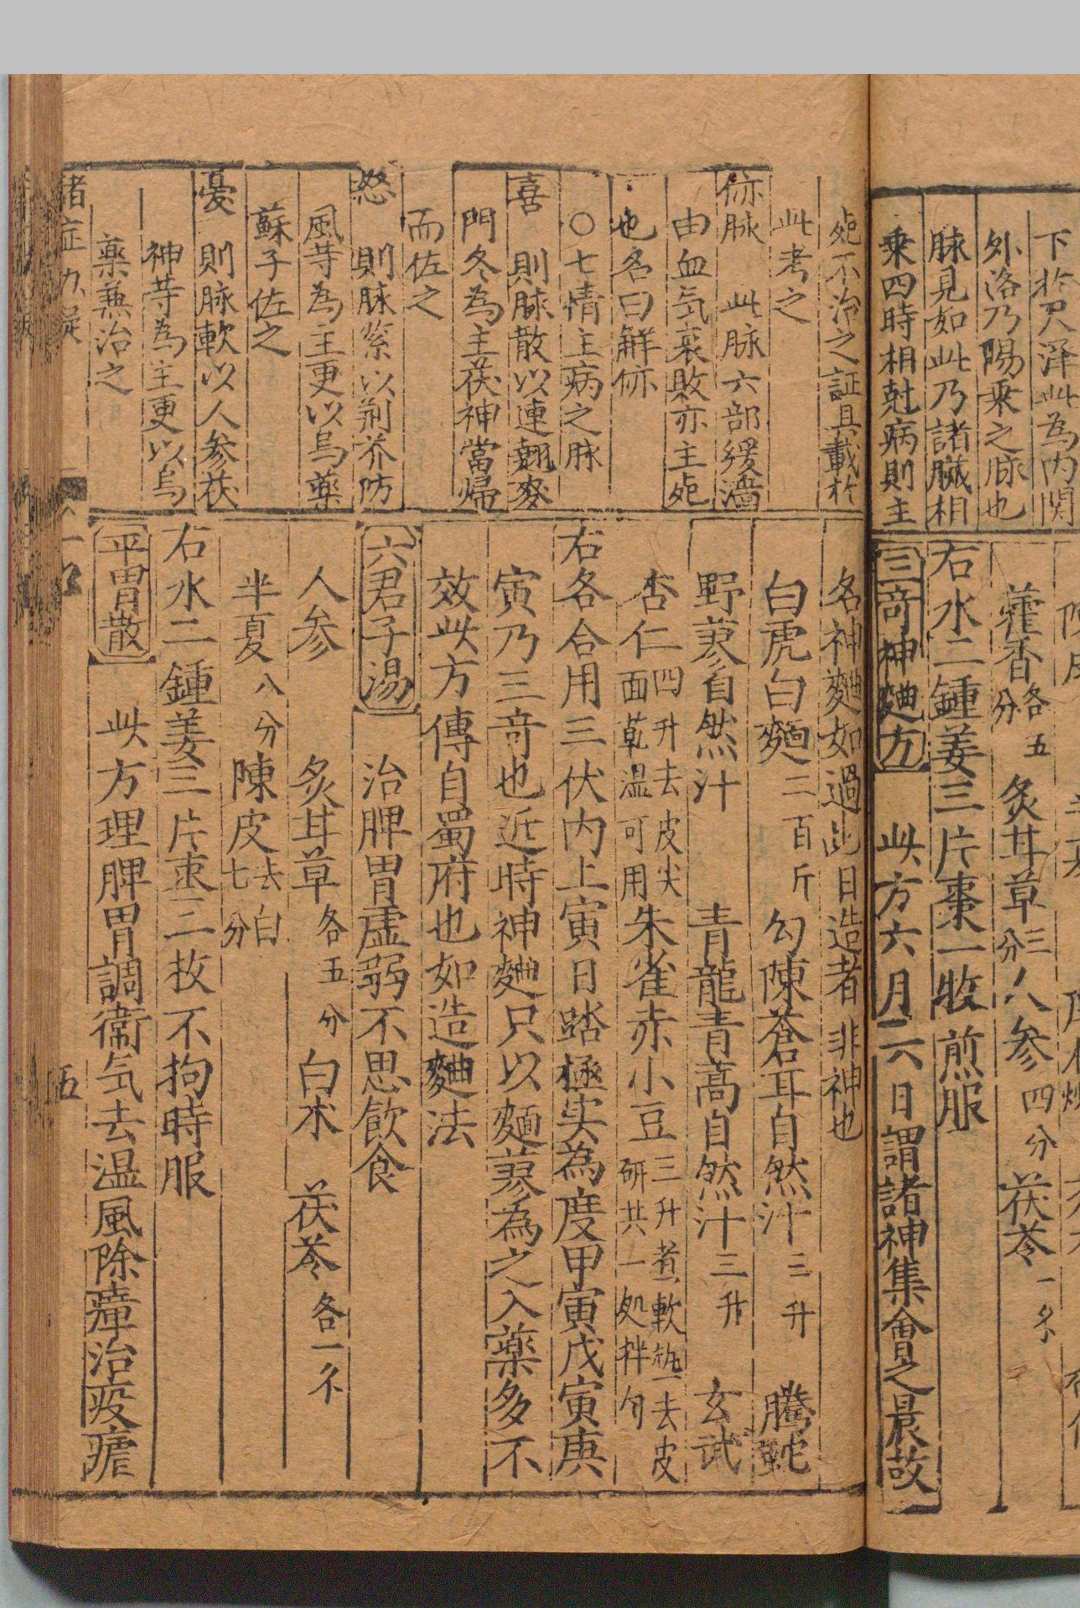 下於尺澤此為内関
外洛乃陽乗之脉也
脉見如此乃諸臟相
乗四時相尅病則主
藿香各五分炙甘草三分人参四分茯苓一
右水二鍾姜三片棗一牧煎服
三竒神麯方此方六月六日謂諸神集會之晨故
死不治之証具載於
此考之
㑊脉此脉六部緩濇
由血気衰敗亦主死
也名曰解㑊
〇七情主病之脉
喜則脉散以連翹麥
門冬為主茯神當歸
而佐之
怒則脉緊以荆芥防
風䒭為主更以烏藥
蘇子佐之
憂則脉軟以人参茯
神䒭為主更以烏
藥兼治之
名神麯如過此日造者非神也
白虎白麵二百斤勾陳蒼耳自然汁三升騰蛇
野蓼自然汁青龍青蒿自然汁三升玄武
杏仁四升去皮尖面乾温可用朱雀赤小豆三升煮軟去皮研共一処拌匀
右各合用三伏内上寅日踏極实為度甲寅戊寅庚
寅乃三竒也近時神麯只以麵蓼為之入藥多不
效此方傳自蜀府也如造麯法
六君子湯治脾胃虚弱不思飲食
人参炙甘草各五分白术茯苓各一
半夏八分陳皮去白七分
右水二鍾姜三片枣二枚不拘時服
平胃散此方理脾胃調衞気去温風除瘴治疫瘧
五